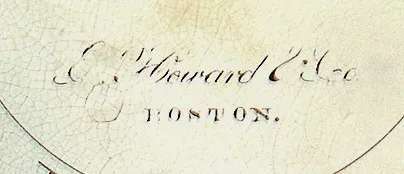 E. Howard & Co
BOSTON.